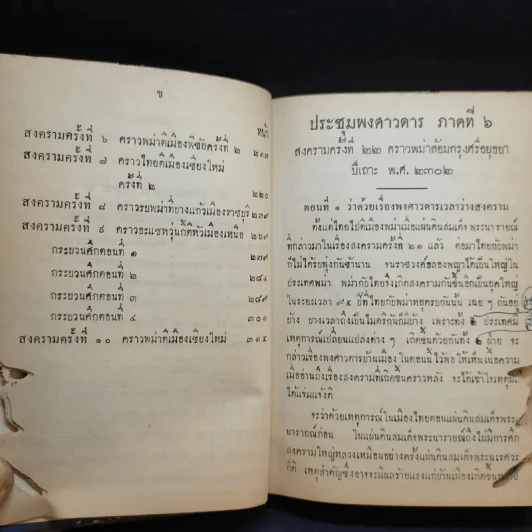 ข
หน้า
สงครามครั้งที่ ๖ คราวพม่าตีเมืองพิชัยครั้งที่ ๒ ๒๑๗
สงครามครั้งที่ ๗ คราวไทยตีเมืองเชียงใหม่
ครั้งที่ ๒ ๒๒๐
สงครามครั้งที่ ๘ คราวรบพม่าที่บางแก้วเมืองราชบุรี ๒๓๙
สงครามครั้งที่ ๙ คราวอะแซหวุ่นกี้ตีหัวเมืองเหนือ ๒๖๙
กระบวนศึกตอนที่ ๑ ๒๗๙
กระบวนศึกตอนที่ ๒ ๒๘๔
กระบวนศึกตอนที่ ๓ ๒๘๙
กระบวนศึกตอนที่ ๔ ๓๐๑
สงครามครั้งที่ ๑๐ คราวพม่าตีเมืองเชียงใหม่ ๓๑๔
ประชุมพงศาวดาร ภาคที่ ๖
สงครามครั้งที่ ๒๒ คราวพม่าล้อมกรุงศรีอยุธยา
ปีเถาะ พ.ศ. ๒๓๐๒
ตอนที่ ๑ ว่าด้วยเรื่องพงศาวดารเวลาว่างสงคราม
ตั้งแต่ไทยไปตีเมืองพม่าเมื่อแผ่นดินสมเด็จพระนารายณ์
ที่กล่าวมาในเรื่องสงครามครั้งที่ ๒๑ แล้ว ต่อมาไทยกับพม่า
ก็ไม่ได้รบพุ่งกันช้านาน จนราชวงศ์อลองพญาได้เป็นใหญ่ใน
ประเทศพม่า พม่ากับไทยจึงเกิดสงครามกันขึ้นอีกเป็นยุคใหญ่
ในระยะเวลา ๙๕ ปีที่ไทยกับพม่าหยุดรบกันนั้น เฉย ๆ กันอยู่
บ้าง บางเวลาถึงเป็นไมตรีกันก็มีบ้าง เพราะทั้ง ๒ ประเทศมี
เหตุการณ์เปลี่ยนแปลงต่าง ๆ เกิดขึ้นด้วยกันทั้ง ๒ ฝ่าย จะ
กล่าวเรื่องพงศาวดารบ้านเมืองในตอนนี้ไว้พอให้เห็นเนื้อความ
เมื่ออ่านถึงเรื่องสงครามที่เกิดขึ้นคราวหลัง จะได้เข้าใจเหตุผล
ได้แจ่มแจ้งดี
จะว่าด้วยเหตุการณ์ในเมืองไทยตอนแผ่นดินสมเด็จพระ
นารายณ์ก่อน ในแผ่นดินสมเด็จพระนารายณ์ถึงไม่มีการศึก
สงครามใหญ่หลวงเหมือนอย่างครั้งแผ่นดินพระนเรศวร
ก็ดี เหตุสำคัญซึ่งอาจจะมีผลร้ายแรงแก่บ้านเมืองเกิดขึ้น